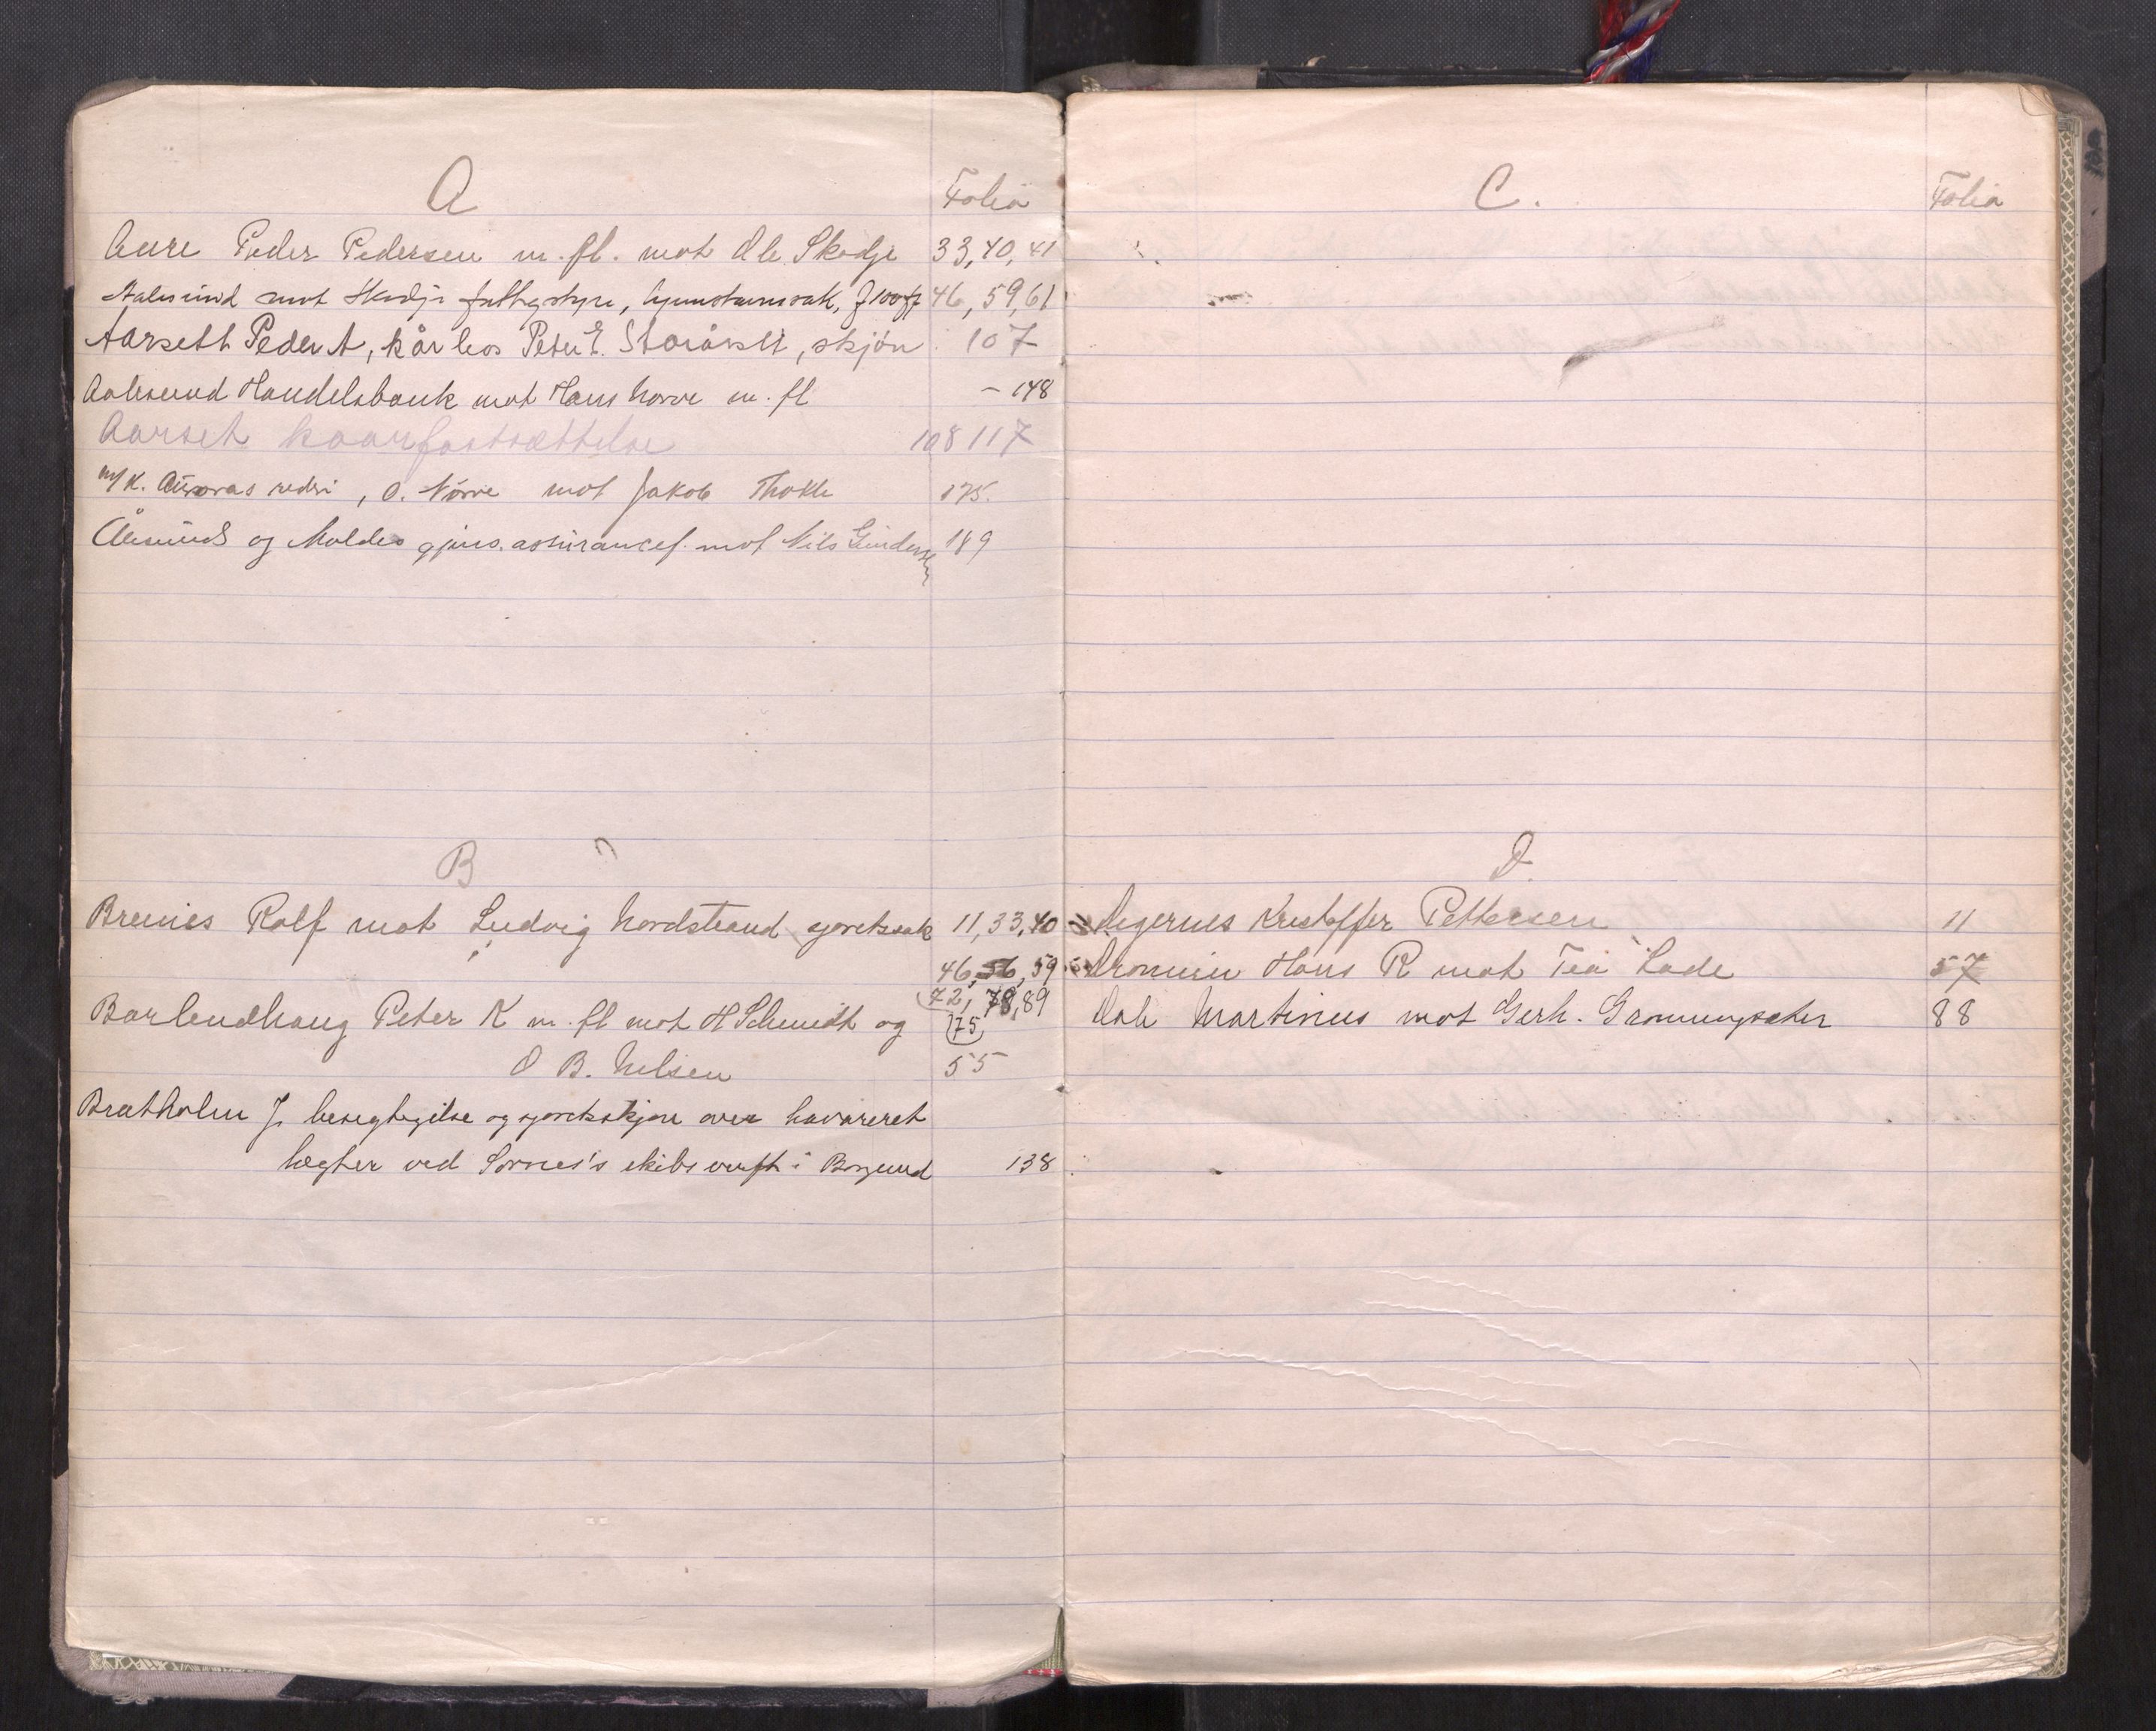 A
Folio
Aure Peder Pedersen m. fl. mot Ole Skodje 33, 40, 41
Aalesund mot Skodje fattigstyre, hjemstamssak, 46, 59, 61
Aarseth Peder A, kår hos Peter E. Storårset, skjön 107
Aalesund Handelsbank mot Hans Norve m. fl - 148
Aarset kaarfastsættelse 108 117
m/k. Auroras rederi, O. Nörve mot Jakob Tholle 175.
Ålesunds og Moldes gjens. assurancef. mot Nils Gundersen 189
B
Brenies Rolf mot Ludvig Nordstrand sjoretssak 11, 33, 40
46, 56, 59
72, 78, 89
Barlendhaug Peter K m. fl mot H Schmidt og 75
O B. Nelsen 55
Bratholm J, besigtigelse og sjoretsskjøn over havareret
lægter ved Sornes's skibsverft i Borgund 138
C.
Folio
D.
Degernes Kristoffer Pettersen 11
Dromnen Hans R mot Tea Lade 57
Dale Martinus mot Gerh. Gronningsæter 88